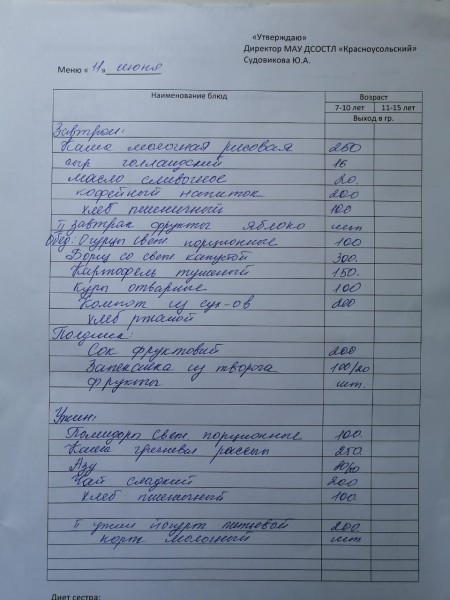 «Утверждаю»
Директор МАУ ДСОСТЛ «Красноусольский»
Судовикова Ю.А.
Меню « 11 » июня
Наименование блюд Возраст
7-10 лет 11-15 лет
Выход в гр.
Завтрак:
Каша молочная рисовая 250
сыр голландский 15
масло сливочное 20.
кофейный напиток 200
хлеб пшеничный 100
II завтрак фрукты яблоко шт
Обед: Огурцы свеж порционные 100
Борщ со свеж капустой 300.
Картофель тушеный 150.
Куры отварные 100
Компот из сух-ов 200
хлеб ржаной
Полдник:
Сок фруктовый 200
Запеканка из творога 100/20
Фрукты шт.
Ужин:
Помидоры свеж порционные 100.
Каша гречневая рассып 250
Азу
Чай сладкий 200
хлеб пшеничный 100
II ужин йогурт питьевой 200.
корж молочный шт
Диет сестра: